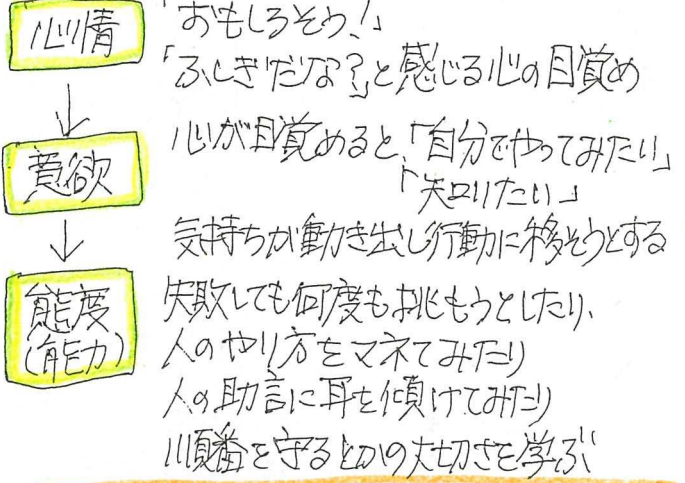 心情
「おもしろそう!」
「ふしぎだな?」と感じる心の目覚め
↓
意欲
心が目覚めると、「自分でやってみたい」
「知りたい」
気持ちが動き出し行動に移そうとする
↓
態度
(能力)
失敗しても何度も挑もうとしたり、
人のやり方をマネてみたり
人の助言に耳を傾けてみたり
順番を守るとかの大切さを学ぶ